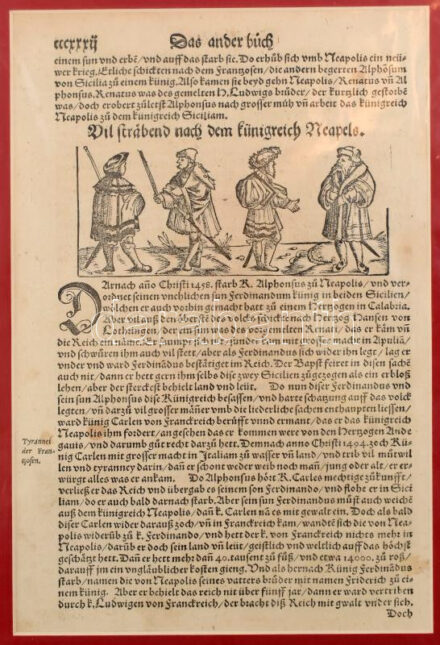 ccccxxxij Das ander bůch
einem sun vnd erbē/ vnd auff das starb sie. Do erhůb sich vmb Neapolis ein nüw
wer krieg. Etliche schickten nach dem Franzosen/ die andern begerten Alphōsum
von Sicilia zů einem künig. Also kamen sie beyd gehn Neapolis/ Renatus vñ Al
phonsus. Renatus was des gemelten H. Ludwigs brůder/ der kurtzlich gestorbē
was/ doch erobert zůletst Alphonsus nach grosser müh vñ arbeit das künigreich
Neapolis zů dem künigreich Siciliam.
Vil sträbend nach dem künigreich Neapels.
DArnach año Christi 1458. starb K. Alphonsus zů Neapolis/ vnd ver-
ordnet seinen vnehlichen sun Ferdinandum künig in beiden Sicilien/
wölchen er auch vorhin gemacht hatt zů einem Hertzogen in Calabria.
Aber vil auß den
Lothringen/ der ein sun was des vorgemelten Renati/ das er kām vñ
die Reich einnäme. Er kumpt
vnd schwůren ihm auch vil stett/ aber als Ferdinandus sich wider ihn legt/ lag er
vnder vnd ward Ferdinandus bestätiget im Reich. Der Bapst feiret in disen sachē
auch nit/ dann er hett gern ihm selbs dise zwey Sicilien zůgezogen als ein erbloß
lehen/ aber der sterckest behielt land vnd leüt. Do nun diser Ferdinandus vnd
sein sun Alphonsus diß Künigreich besassen/ und harte schatzung auff das volck
legten/ vñ darzů vil grosser männer vmb die liederliche sachen enthaupten liessen/
ward künig Carlen von Franckreich berüfft vnnd ermant/ das er das Künigreich
Neapolis ihm fordert/ angesehen das es kommen were von den Hertzogen Ande
gauis/ vnd darumb gůt recht darzů hett. Demnach anno Christi 1494. zoch Kü-
nig Carlen mit grosser macht in Italiam zů wasser vñ land/ vnd trib vil můtwil
len vnd tyranney darin/ dañ er schont weder weib noch mañ/ jung oder alt/ er er-
würgt alles was er ankam. Do Alphonsus hört K. Carles mechtige zůkunfft/
verließ er das Reich vnd übergab es seinem sun Ferdinando/ vnd flohe er in Sici
liam/ do er auch bald darnach starb. Aber sein sun Ferdinandus můst auch weichē
auß dem künigreich Neapolis/ dañ K. Carlen nā es mit gewalt ein. Doch als bald
diser Carlen wider darauß zoch/ vñ in Franckreich kam/ wandtē sich die von Nea-
polis widerüb zů K. Ferdinando/ vnd hett der K. von Franckreich nichts mehr in
Neapolis/ darüb er doch sein land vñ leüt/ geistlich vnd weltlich auff das höchst
geschätzt hett. Dañ er hett mehr dañ 40. tausent zů fůß/ vnd etwa 14000. zů roß/
darauff jm ein vnglaublicher kosten gieng. Vnd als hernach Künig Ferdinandus
starb/ namen die von Neapolis seines vatters brůder mit namen Friderich zů ei-
nem künig. Aber er behielt das reich nit über fünff jar/ dann er ward vertriben
durch K. Ludwigen von Franckreich/ der bracht diß Reich mit gwalt vnder sich.
Doch
Tyrannei
der Fran-
zosen.